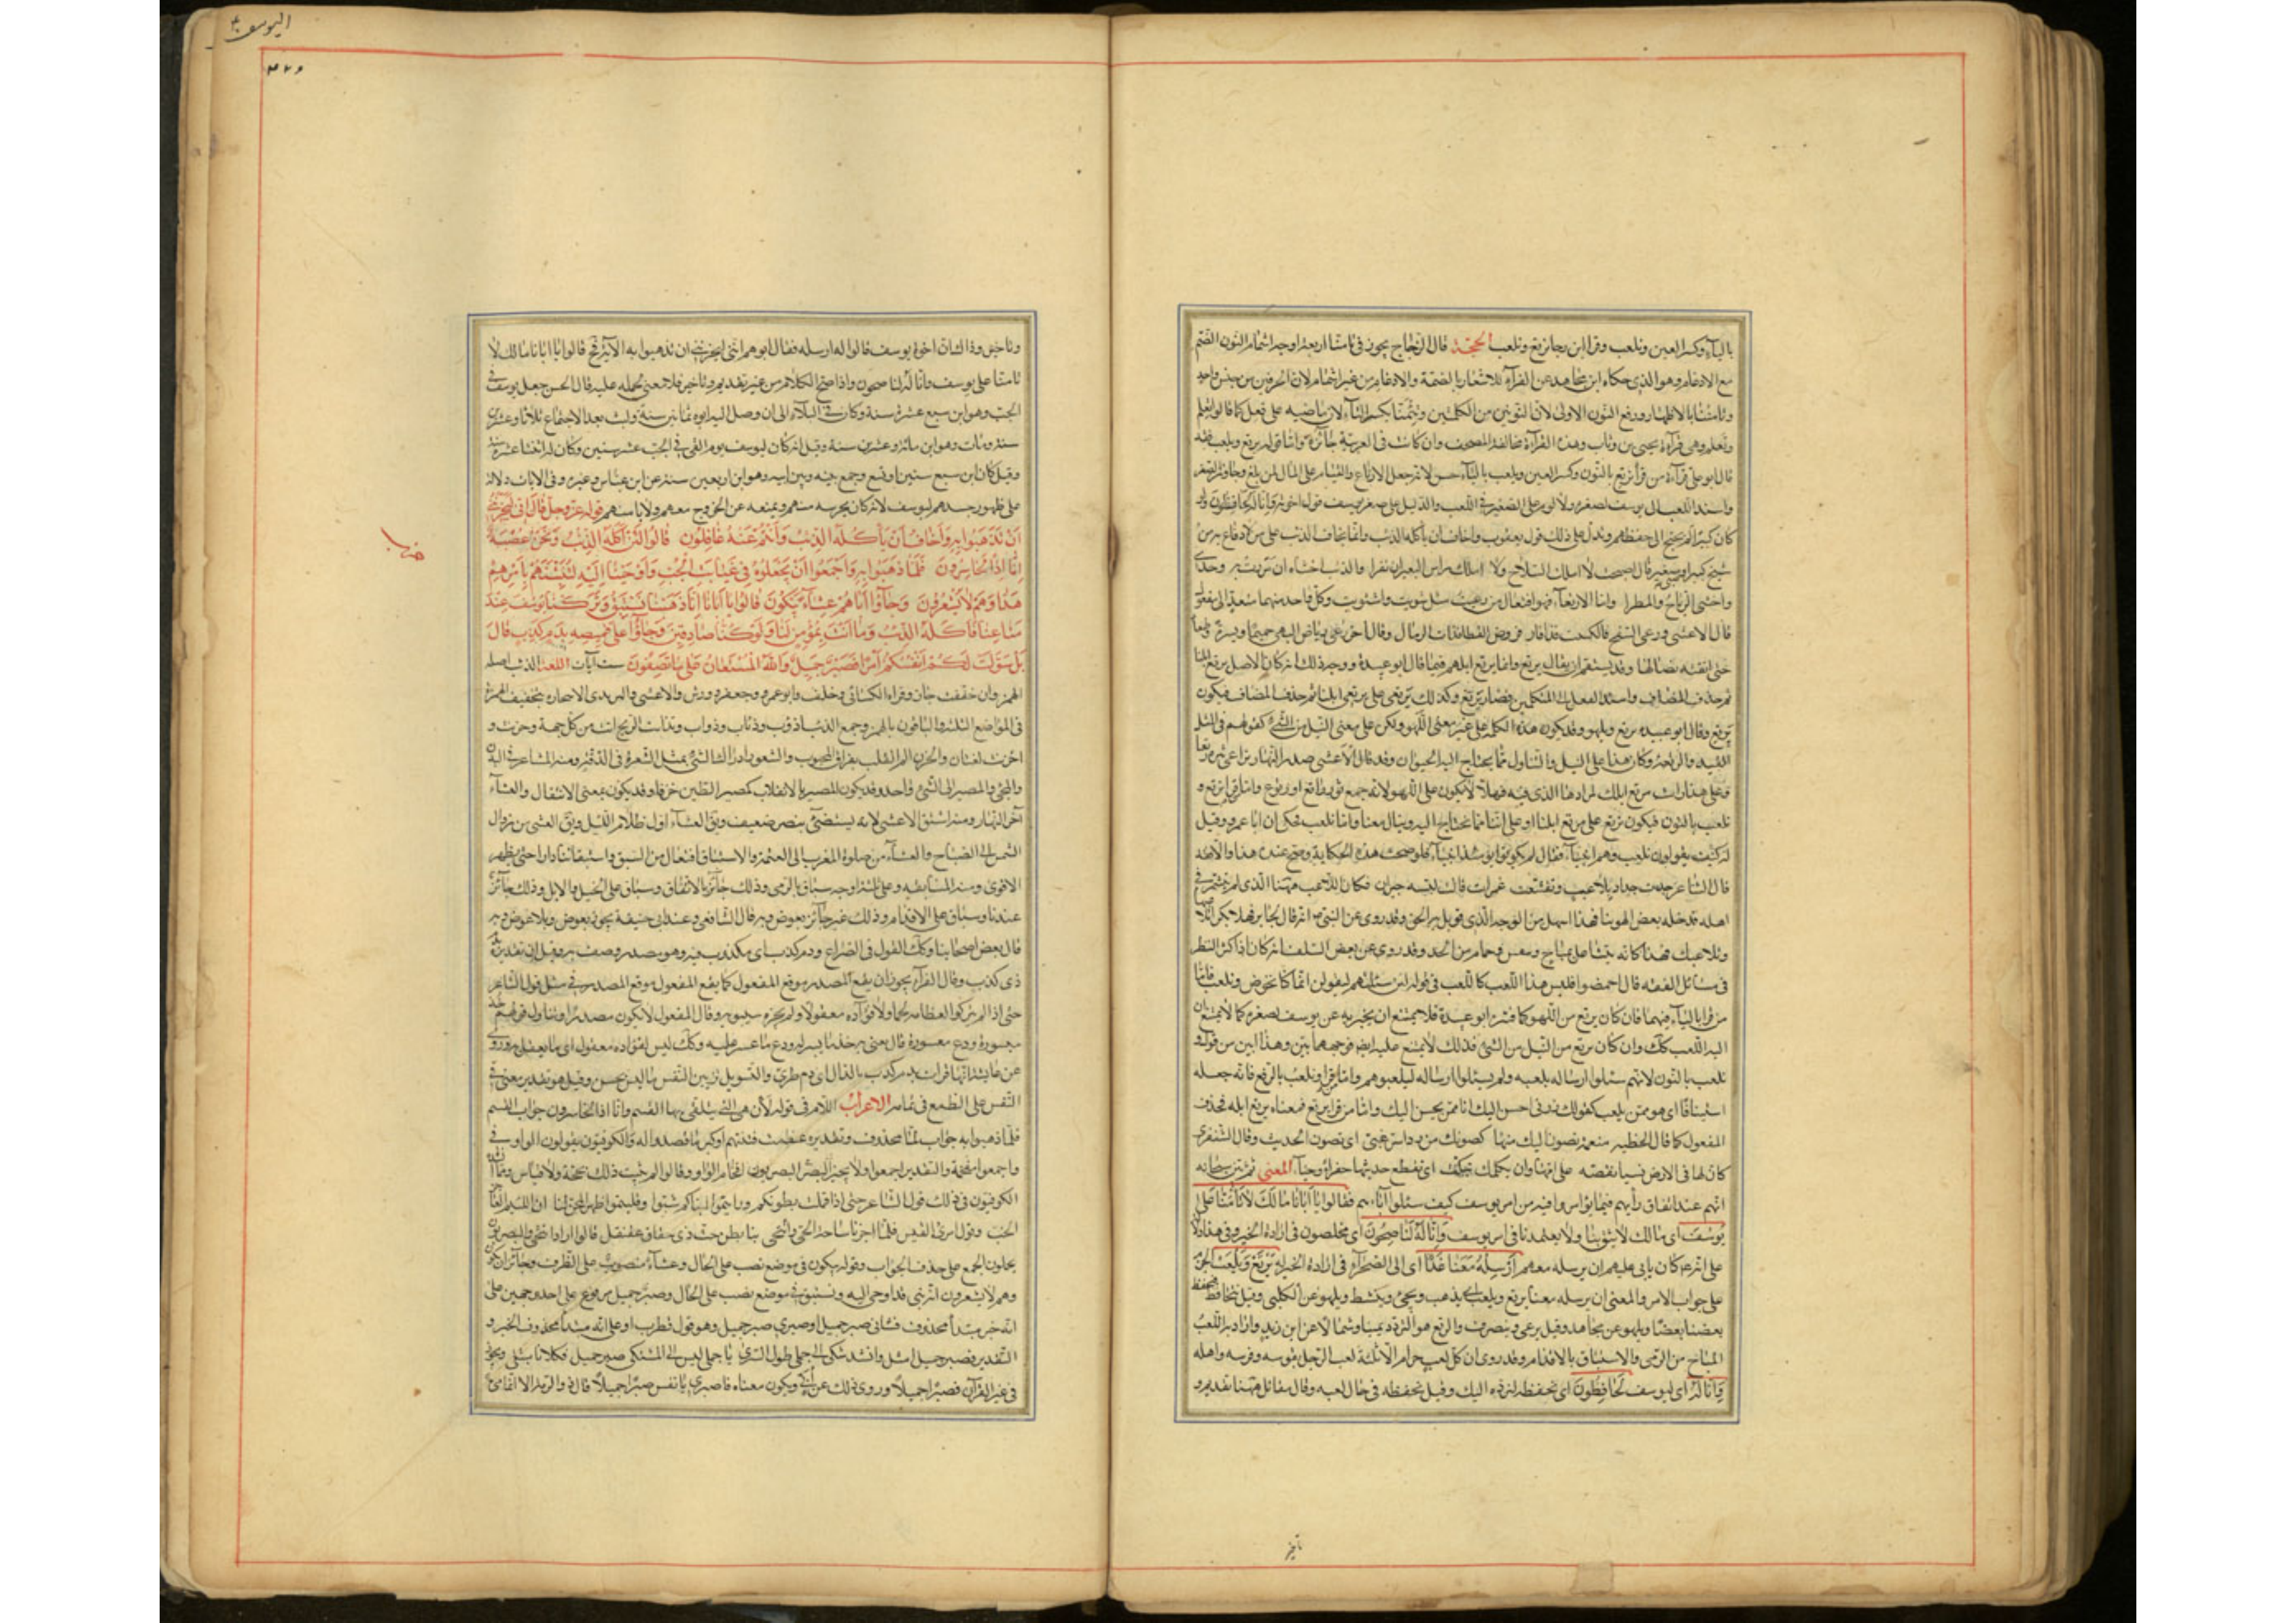 بالياء وكسر العين ونلعب وقرا ابن رجا نرتع ونلعب الحجة قال الزجاج يجوز فى تامنا اربعة اوجه اشمام النون الضم
مع الادغام وهو الذى حكاه ابن مجاهد عن القرآء للاشعار بالضمة والادغام من غير اشمام لان الحرفين من جنس واحد
وتامننا بالاظهار ورفع النون الاولى لان النونين من الكلمتين وتيمنا بكسر التآء لان ماضيه على فعل كما قالوا تعلم
وتعلم وهى قرآءة يحيى بن وثاب وهذه القرآءة مخالفة المصحف وان كانت فى العربية جائزة واما قوله يرتع ويلعب فقد
قال ابو على قرآءة من قرأ نرتع بالنون وكسر العين ويلعب بالياء حسن لانه جعل الارتعاء والقيام على المال لمن بلغ وجاوز الصغر
واسند اللعب الى يوسف لصغره ولا لوم على الصغير فى اللعب والدليل على صغر يوسف قول اخوته وانا له لحافظون ولو
كان كبيرا لم يحتج الى حفظهم ويدل على ذلك قول يعقوب واخاف ان ياكله الذئب وانما يخاف الذئب على من لا دفاع به من
شيخ كبير او صبى صغير قال اصبحت لا احمل السلاح ولا املك راس البعير ان نفرا والذئب اخشاه ان مررت به وحدى
واخشى الرياح والمطرا واما الارتعآء فهو افتعال من رعيت مثل شويت واشتويت وكل واحد منهما متعد الى مفعول
قال الاعشى
حتى
ثم حذف المضاف واسند الفعل الى المتكلمين فصار نرتع وكذلك نرتعى على يرتعى ابلنا ثم حذف المضاف فيكون
نرتع وقال ابو عبيدة نرتع ونلهو وقد يكون هذه الكلمة على غير معنى اللهو ولكن على معنى النيل من الشئ كقولهم فى المثل
القيد والرتعة وكان هذا على النيل والتناول مما يحتاج اليه الحيوان وقد قال الاعشى صدر النهار
نلعب بالنون فيكون نرتع على نرتع ابلنا او على اننا ننال مما نحتاج اليه
له كيف يقولون نلعب وهم انبيآء فقال لم يكونوا يومئذ انبيآء فلو صحت هذه الحكاية وصح عنده هذا والا فقد
قال الشاعر
اهله قد خله بعض الهوينا فهذا اسهل من الوجه الذى قوبل به الحق وقد روى عن النبى انه قال لجابر فهلا بكرا تلاعبها
وتلاعبك فهذا كانه
فى مسائل الفقه قال احمضوا فليس هذا اللعب كاللعب فى قوله لئن سئلتهم ليقولن انما كنا نخوض ونلعب فاما
من قرا باليآء فيهما فان كان يرتع من اللهو كما فسره ابو عبيدة فلا يمتنع ان يخبر به عن يوسف لصغره كما لا يمتنع ان
اليه اللعب كك وان كان يرتع من النيل من الشئ فذلك لا يمتنع عليه ايضا فوجههما بين وهذا ابين من قول
نلعب بالنون لانهم سئلوا ارساله يلعبه ولم يسئلوا ارساله ليلعبوهم واما من قرا ونلعب بالرفع فانه جعله
استينافا اى هو ممن يلعب كقولك زرنى احسن اليك انا ممن يحسن اليك واما من قرا يرتع فمعناه يرتع ابله فحذف
المفعول كما قال الحطيئة منعمة تصون اليك منها كصونك من رداء شرعبى اى تصون الحديث وقال الشنفرى
كان لها فى الارض نسيا تقصه على امها وان تكلمك تبلت اى تقطع حديثها خفرا وحيآء المعنى ثم بين سبحانه
انهم عند اتفاق رأيهم فيما تؤامروا فيه من امر يوسف كيف سئلوا اباهم فقالوا يا ابانا مالك لا تامنا على
يوسف اى مالك لا تثق بنا ولا تعتمدنا فى امر يوسف وانا له لناصحون اى مخلصون فى ارادة الخير وفى هذا دلالة
على انه ع كان يابى عليهم ان يرسله معهم ارسله معنا غدا اى الى الصحرآء فى ارادة الخير له يرتع ويلعب الجزم
على جواب الامر والمعنى ان ترسله معنا يرتع ويلعب اى يذهب ويجئ وينشط ويلهو عن الكلبى وقيل نتحافظ فيحفظ
بعضنا بعضا ويلهو عن مجاهد وقيل نرعى ونتصرف والرتع هو التردد يمينا وشمالا عن ابن زيد وارادوا به اللعب
المباح من الرمى والاستباق بالاقدام وقد روى ان كل لعب حرام الا ثلثة لعب الرجل بقوسه وفرسه واهله
وانا له اى ليوسف لحافظون اى نحفظه لنرده اليك وقيل نحفظه فى حال لعبه وقال مقاتل ههنا تقديم و
تاخير
اليوسف
وتاخير وذلك ان اخوة يوسف قالوا له ارسله فقال ابوهم انى ليحزننى ان تذهبوا به الآية فح قالوا يا ابانا مالك لا
تامنا على يوسف وانا له لناصحون واذا صح الكلام من غير تقديم وتاخير فلا معنى لحمله عليه قال الحسن جعل يوسف فى
الجب وهو ابن سبع عشرة سنة وكان فى البلآء الى ان وصل اليه ابوه ثمانين سنة ولبث بعد الاجتماع ثلاثا وعشرين
سنة ومات وهو ابن مائة وعشرين سنة وقيل انه كان ليوسف يوم القى فى الجب عشر سنين وكان له اثنتا عشرة سنة
وقيل كان ابن سبع سنين او تسع وجمع بينه وبين ابيه وهو ابن اربعين سنة عن ابن عباس وغيره وفى الايات دلالة
على ظهور حسدهم ليوسف لانه كان يحرسه منهم ويمنعه عن الخروج معهم ولا يامنهم قوله عز وجل قال انى ليحزننى
ان تذهبوا به واخاف ان ياكله الذئب وانتم عنه غافلون قالوا لئن اكله الذئب ونحن عصبة
انا اذا لخاسرون فلما ذهبوا به واجمعوا ان يجعلوه فى غيابت الجب واوحينا اليه لتنبئنهم بامرهم
هذا وهم لا يشعرون وجاؤا اباهم عشآء يبكون قالوا يا ابانا انا ذهبنا نستبق وتركنا يوسف عند
متاعنا فاكله الذئب وما انت بمؤمن لنا ولو كنا صادقين وجاؤا على قميصه بدم كذب قال
بل سولت لكم انفسكم امرا فصبر جميل والله المستعان على ما تصفون ست آيات اللغة الذئب اصله
الهمز وان خففت جاز وقراه الكسائى وخلف وابو عمرو وجعفر وورش والاعشى بتخفيف الهمزة
فى المواضع الثلثة والباقون بالهمز وجمع الذئب اذؤب وذئاب وذؤبان وتذابت الريح اتت من كل جهة وحزنت و
احزنت لغتان والحزن الم القلب بفراق المحبوب والشعور ادراك الشئ بمثل الشعرة فى الدقة ومنه الشاعر
والمجئ والمصير الى الشئ واحد وقد يكون المصير بالانقلاب كمصير الطين خزفا وقد يكون بمعنى الانتقال والعشآء
آخر النهار ومنه اشتق الاعشى لانه يستضئ ببصر ضعيف ويق العشآء اول ظلام الليل ويق العشى من زوال
الشمس الى الصباح والعشآء من صلوة المغرب الى العتمة والاستباق افتعال من السبق حتى يظهر
الاقوى ومنه المسابقة وعلى ثلثة اوجه سباق بالرمى وذلك جائز بالاتفاق وسباق على الخيل والابل وذلك جائز
عندنا وسباق على الاقدام وذلك غير جآئز بعوض وبه قال الشافعى وعند ابى حنيفة يجوز بعوض وبلا عوض وبه
قال بعض اصحابنا وكك القول فى الصراع ودم كذب اى مكذوب فيه وهو مصدر وصف به وقيل ان تقديره
ذى كذب وقال الفرآء يجوز ان يقع المصدر موقع المفعول كما يقع المفعول موقع المصدر فى مثل قول الشاعر
حتى اذا لم يتركوا لعظامه لحما ولا لفؤاده معقولا ولم يجزه سيبويه وقال المفعول لا يكون مصدرا ويتاول قولهم خذ
ميسوره ودع معسوره قال يعنى به خذ ما يسر له ودع ما عسر عليه وكك ليس لفؤاده معقول اى ما يعقل به وروى
عن عايشة انها قرات بدم كدب بالدال اى دم طرى والتسويل تزيين النفس ما ليس بحسن وقيل هو تقدير معنى فى
النفس على الطمع فى تمامه الاعراب اللام فى قوله لئن هى التى يتلقى بها القسم وانا اذا لخاسرون جواب القسم
فلما ذهبوا به جواب لما محذوف وتقديره عظمت فتنتهم او كبر ما قصدوا له والكوفيون يقولون الواو فى
واجمعوا مقحمة والتقدير اجمعوا ولا يجيز البصريون اقحام الواو وقالوا لم يثبت ذلك بحجة ولا قياس ومما انشده
الكوفيون فى ذلك قول الشاعر حتى اذا قملت بطونكم ورايتم ابناكم شبوا وقلبتم ظهر المجن لنا ان اللئيم العاجز
الخب وقول امرئ القيس فلما اجزنا ساحة الحى وانتحى بنا بطن خبت ذى حقاف عقنقل قالوا اراد انتحى والبصريون
يحملون الجميع على حذف الجواب وقوله يبكون فى موضع نصب على الحال وعشآء منصوب على الظرف وجائز ان يكون
وهم لا يشعرون ونستبق فى موضع نصب على الحال وصبر جميل مرفوع على احد وجهين على
انه خبر مبتدأ محذوف فشانى صبر جميل او صبرى صبر جميل وهو قول قطرب او على انه مبتدأ محذوف الخبر و
التقدير فصبر جميل امثل وانشد شكى الى جملى طول السرى يا جملى ليس الى المشتكى صبر جميل فكلانا مبتلى ويجوز
فى غير القرآن فصبرا جميلا وروى ذلك عن ابى ويكون معناه فاصبرى يا نفس صبرا جميلا قال ذو الرمة الا انما مى